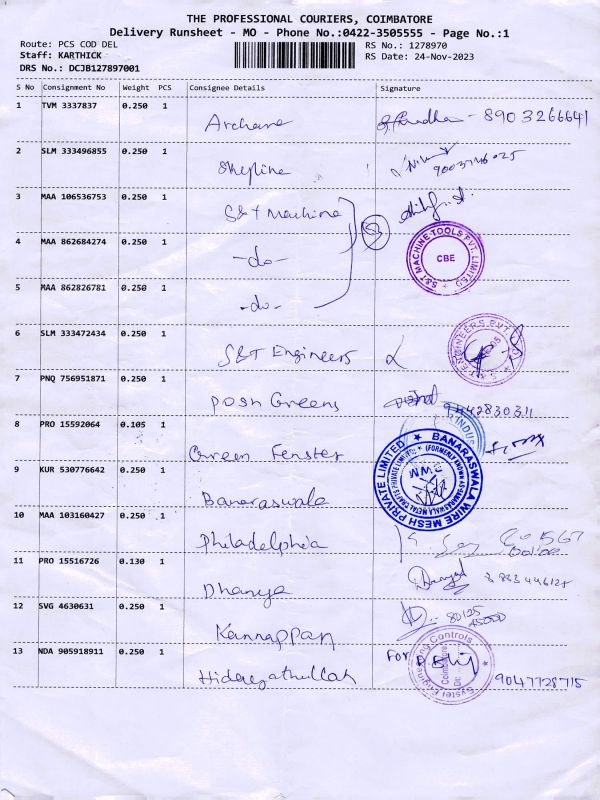 THE PROFESSIONAL COURIERS, COIMBATORE
Delivery Runsheet - MO - Phone No.:0422-3505555 - Page No.:1
Route: PCS COD DEL
RS No.: 1278970
Staff: KARTHICK
RS Date: 24-Nov-2023
DRS No.: DCJB127897001
S No Consignment No Weight PCS Consignee Details Signature
1 TVM 3337837 0.250 1 Archana - 8903266641
2 SLM 333496855 0.250 1 Skyline
3 MAA 106536753 0.250 1 S&T Machine
4 MAA 862684274 0.250 1 -do-
S&T MACHINE TOOLS PVT. LIMITED
CBE
5 MAA 862826781 0.250 1 -do-
6 SLM 333472434 0.250 1 S&T Engineers
7 PNQ 756951871 0.250 1 Posh Greens 9442830311
8 PRO 15592064 0.105 1 Green Fenster
9 KUR 530776642 0.250 1 Banaraswala
BANARASWALA WIRE MESH PRIVATE LIMITED
BWM
10 MAA 103160427 0.250 1 Philadelphia
11 PRO 15516726 0.130 1 Dhanya
12 SVG 4630631 0.250 1 Kannappan
13 NDA 905918911 0.250 1 Hidayathullah For 9047728715
Systel Engineering Controls
Coimbatore